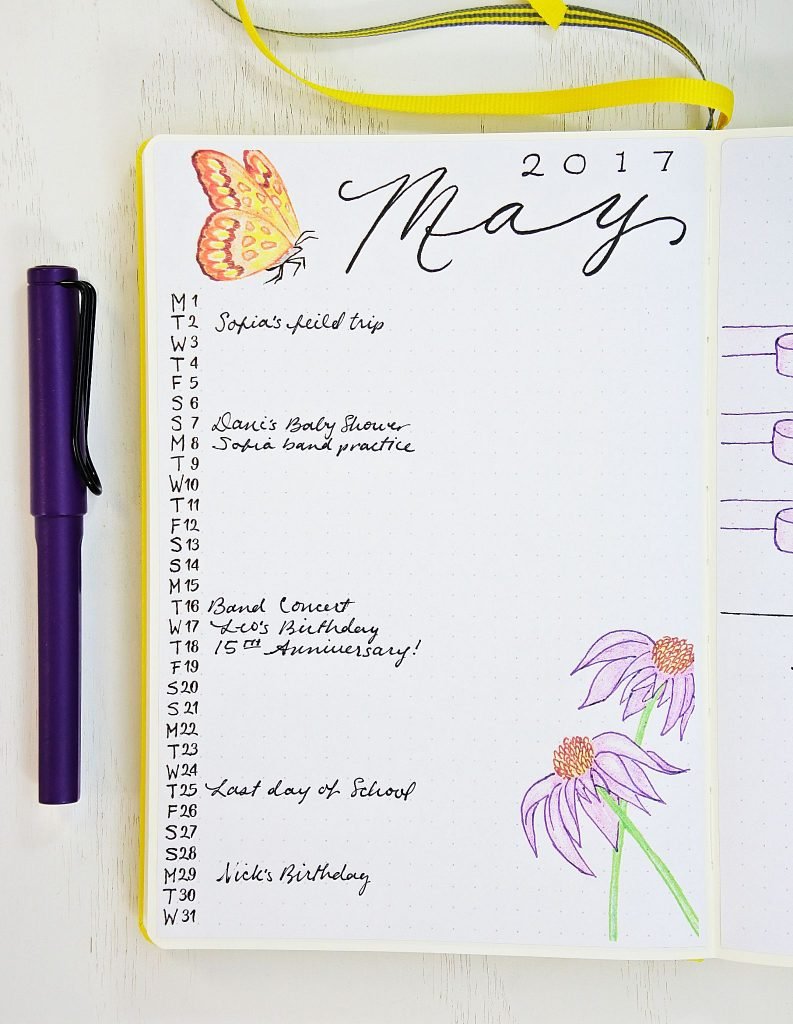 2017
May
M 1
T 2 Sofia's feild trip
W 3
T 4
F 5
S 6
S 7 Dani's Baby Shower
M 8 Sofia band practice
T 9
W 10
T 11
F 12
S 13
S 14
M 15
T 16 Band Concert
W 17 Leo's Birthday
T 18 15TH Anniversary!
F 19
S 20
S 21
M 22
T 23
W 24
T 25 Last day of School
F 26
S 27
S 28
M 29 Nick's Birthday
T 30
W 31